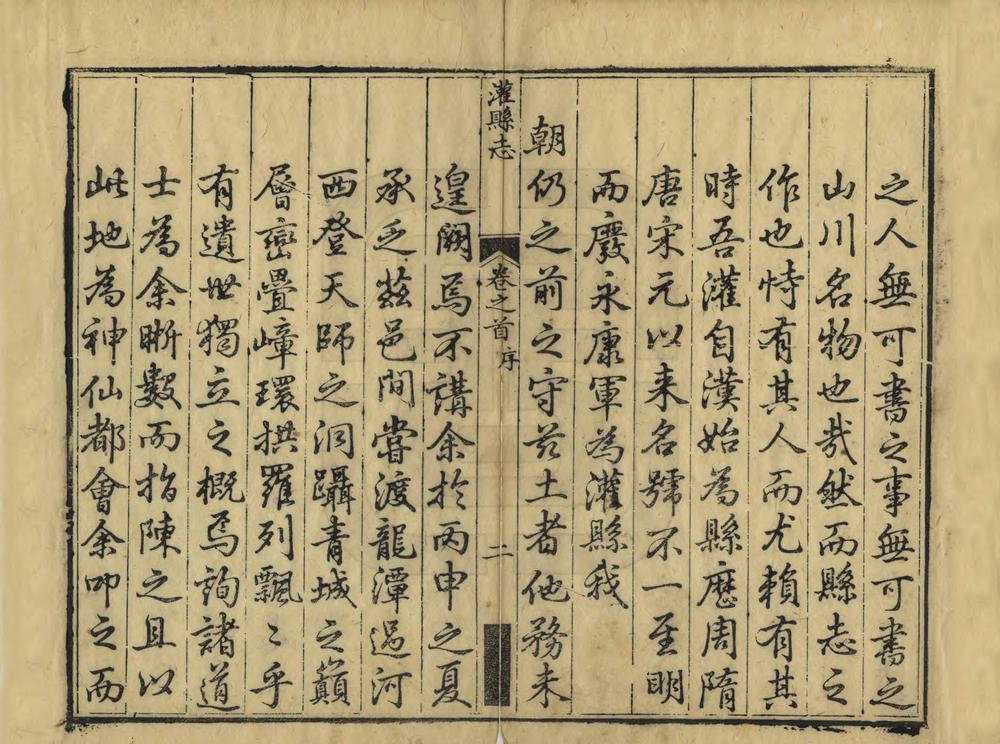 之人無可書之事無可書之
山川名物也哉然而縣志之
作也恃有其人而尤賴有其
時吾灌自漢始為縣歷周隋
唐宋元以来名號不一至明
而廢永康軍為灌縣我
朝仍之前之守茲土者他務未
灌縣志
卷之首
序
二
遑闕焉不講余於丙申之夏
承乏茲邑間嘗渡龍潭過河
西登天師之洞躡青城之巔
層巒疊嶂環拱羅列飄〻乎
有遺世獨立之概焉詢諸道
士為余晰數而指陳之且以
此地為神仙都會余叩之而